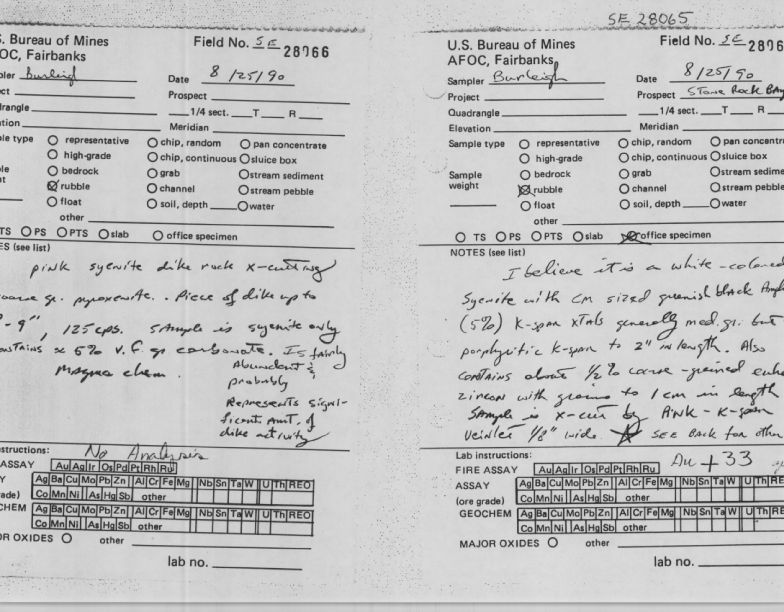 SE 28065
S. Bureau of Mines
OC, Fairbanks
Field No. SE 28066
pler Burleigh
Date 8/25/90
ect
Prospect
rangle
1/4 sect. T R
ation
Meridian
ple type
representative
chip, random
pan concentrate
high-grade
chip, continuous
sluice box
ple
bedrock
grab
stream sediment
ht
rubble
channel
stream pebble
float
soil, depth
water
other
TS
PS
PTS
slab
office specimen
ES (see list)
pink syenite dike rock x-cutting
coarse gr. pyroxenite. Piece of dike up to
-9", 125 cps. Sample is syenite only
contains ≈ 5% v.f. gr carbonate. Is fairly
Magna chem.
Abundant &
probably
Represents signi-
ficant amt. of
dike activity
structions: No Analysis
ASSAY
Au Ag Ir Os Pd Pt Rh Ru
Y
Ag Ba Cu Mo Pb Zn Al Cr Fe Mg Nb Sn Ta W U Th REO
rade)
Co Mn Ni As Hg Sb other
CHEM
Ag Ba Cu Mo Pb Zn Al Cr Fe Mg Nb Sn Ta W U Th REO
Co Mn Ni As Hg Sb other
OR OXIDES
other
lab no.
U.S. Bureau of Mines
AFOC, Fairbanks
Field No. SE 2806
Sampler Burleigh
Date 8/25/90
Project
Prospect Stone Rock Bay
Quadrangle
1/4 sect. T R
Elevation
Meridian
Sample type
representative
chip, random
pan concentra
high-grade
chip, continuous
sluice box
Sample
bedrock
grab
stream sedime
weight
rubble
channel
stream pebble
float
soil, depth
water
other
TS
PS
PTS
slab
office specimen
NOTES (see list)
I believe it is a white-colored
Syenite with cm sized greenish black Amph
(5%) K-spar xtals generally med. gr. but
porphyritic K-spar to 2" in length. Also
contains about 1/2% coarse-grained euhe
zircon with grains to 1 cm in length
Sample is x-cut by pink-K-spar
veinlet 1/8" wide. SEE BACK for other
Lab instructions:
Au + 33
FIRE ASSAY
Au Ag Ir Os Pd Pt Rh Ru
ASSAY
Ag Ba Cu Mo Pb Zn Al Cr Fe Mg Nb Sn Ta W U Th RE
(ore grade)
Co Mn Ni As Hg Sb other
GEOCHEM
Ag Ba Cu Mo Pb Zn Al Cr Fe Mg Nb Sn Ta W U Th RE
Co Mn Ni As Hg Sb other
MAJOR OXIDES
other
lab no.